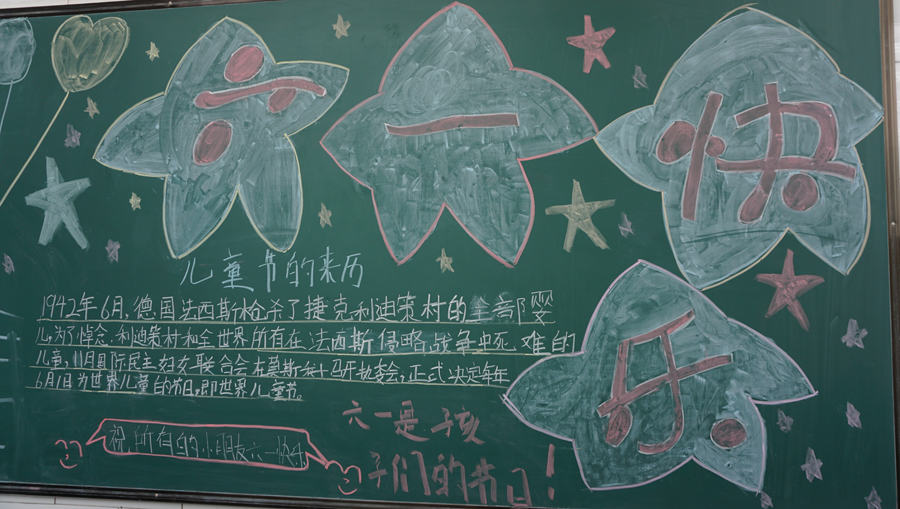 六一快
乐
儿童节的来历
1942年6月,德国法西斯枪杀了捷克利迪策村的全部婴
儿。为了悼念,利迪策村和全世界所有在法西斯侵略战争中死难的
儿童,11月国际民主妇女联合会在莫斯科召开执委会,正式决定每年
6月1日为世界儿童的节日,即世界儿童节。
六一是孩
子们的节日!
祝,所有的小朋友六一快乐